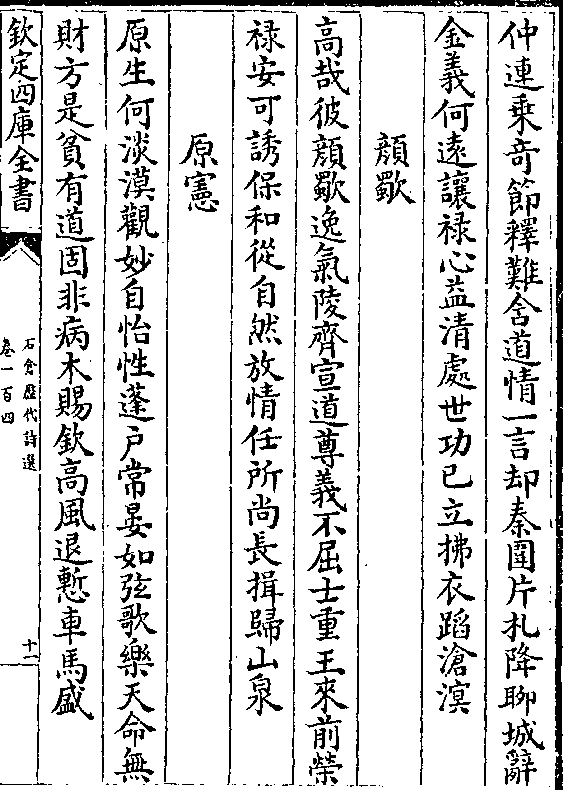 仲連乗竒節釋難舍道情一言却秦圍片札降聊城辭
金義何遠讓禄心益清處世功已立拂衣蹈滄溟
顔歜
高哉彼顔歜逸氣陵齊宣道尊義不屈士重王來前榮
禄安可誘保和從自然放情任所尚長揖歸山泉
原憲
原生何淡漠觀妙自怡性蓬户常晏如弦歌樂天命無
財方是貧有道固非病木賜欽高風退慙車馬盛
欽定四庫全書
石倉歴代詩選
卷一百四
十一